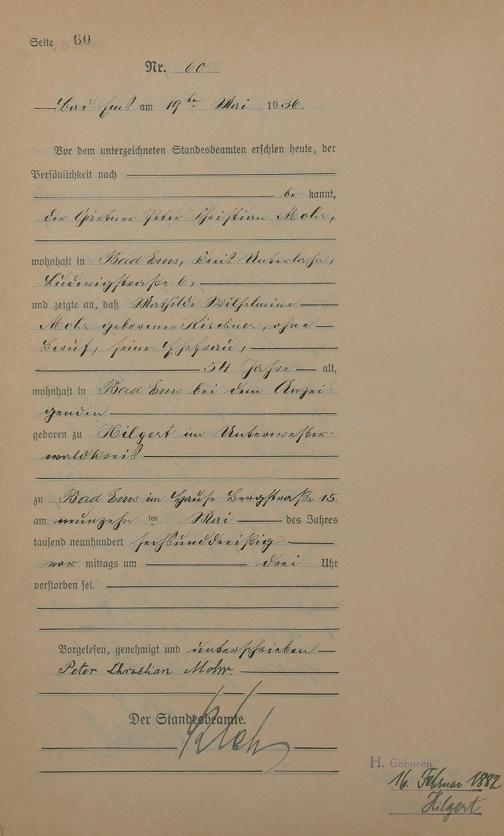 Seite 60
Nr. 60
Bad Ems am 19ten Mai 1936.
Vor dem unterzeichneten Standesbeamten erschien heute, der
Persönlichkeit nach
be kannt,
der Gärtner Peter Christian Mohr,
wohnhaft in Bad Ems, Kreis Unterlahn,
Ludwigstraße 6,
und zeigte an, daß Mathilde Wilhelmine
Mohr geborene Kirchner, ohne
Beruf, seine Ehefrau,
54 Jahre alt,
wohnhaft in Bad Ems bei dem Anzei-
genden
geboren zu Hilgert im Unterwester-
waldkreis
zu Bad Ems im Hause Bergstraße 15
am neunzehn ten Mai des Jahres
tausend neunhundert sechsunddreißig
vor mittags um drei Uhr
verstorben sei.
Vorgelesen, genehmigt und unterschrieben
Peter Christian Mohr.
Der Standesbeamte.
H. Geboren
16. Februar 1882
Hilgert